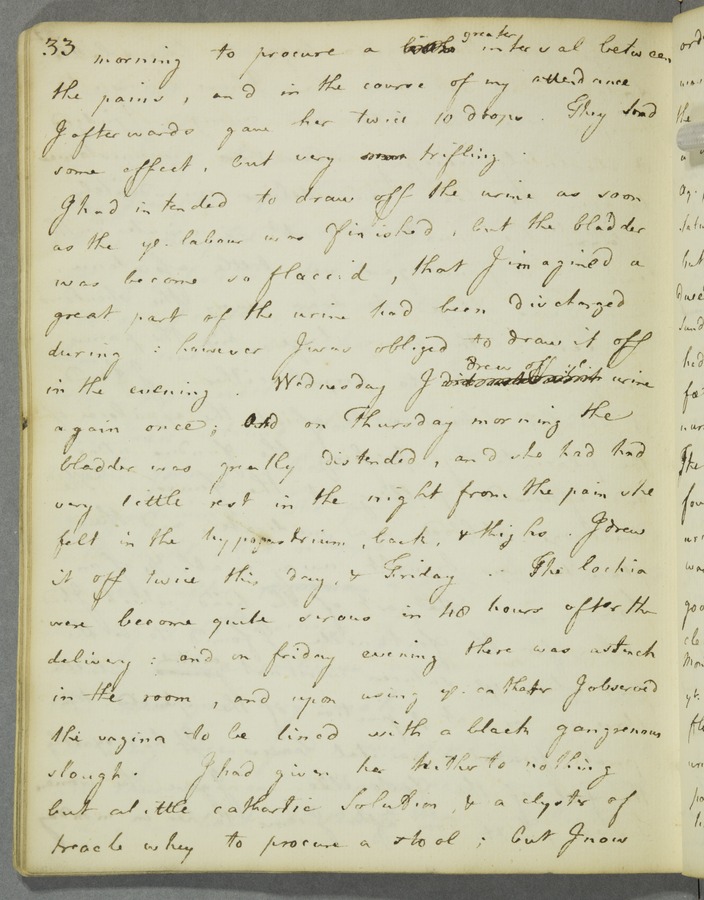 33
morning to procure a greater interval between
the pains, and in the course of my attendance
I afterwards gave her twice 10 drops. They had
some effect, but very trifling.
I had intended to draw off the urine as soon
as the ye. labour was finished, but the bladder
was become so flaccid, that I imagined a
great part of the urine had been discharged
during: however I was obliged to draw it off
in the evening. Wednesday I drew off ye. urine
again once; and on Thursday morning the
bladder was greatly distended, and she had had
very little rest in the night from the pain she
felt in the hypogastrium, back, & thighs. I drew
it off twice this day, & Friday. The lochia
were become quite serous in 48 hours after the
delivery: and on friday evening there was a stench
in the room, and upon using ye. catheter I observed
the vagina to be lined with a black gangrenous
slough. I had given her hitherto nothing
but a little cathartic solution, & a clyster of
treacle whey to procure a stool; but I now